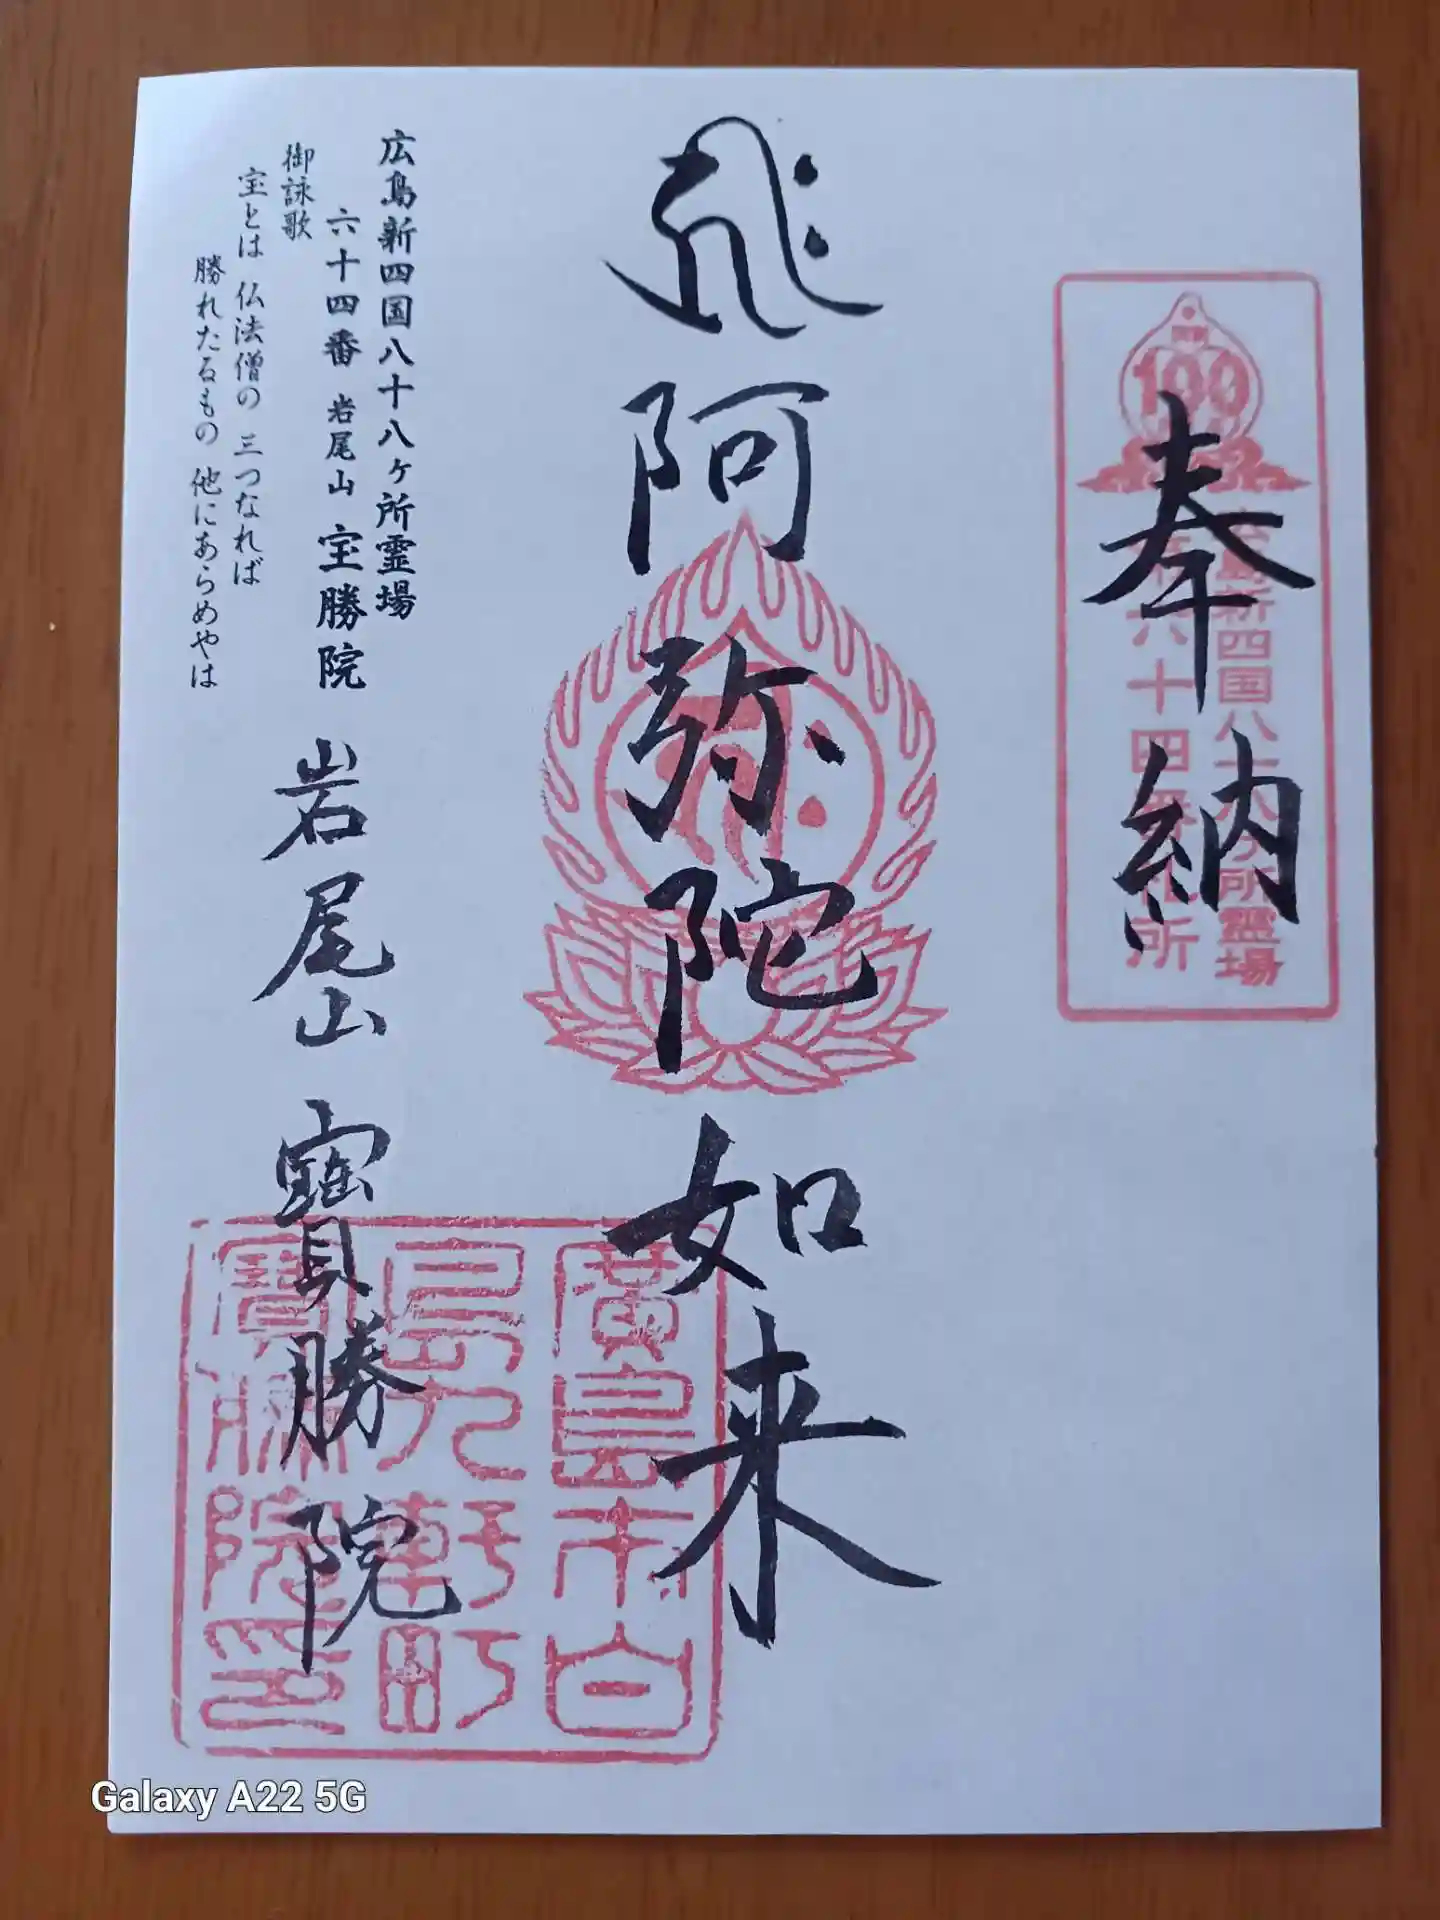 奉納
100
広島新四国八十八ヶ所霊場
第六十四番札所
阿弥陀如来
広島新四国八十八ヶ所霊場
六十四番 岩尾山 宝勝院
御詠歌
宝とは 仏法僧の 三つなれば
勝れたるもの 他にあらめやは
岩尾山 寶勝院
廣島市白
島九軒町
寶勝院印
Galaxy A22 5G